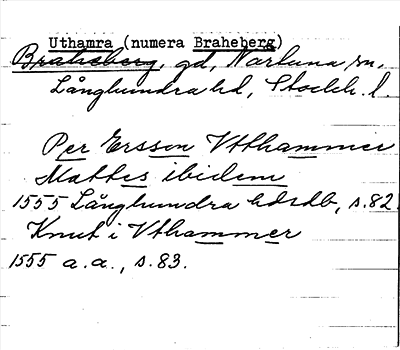 Uthamra (numera Braheberg)
Braheberg, gd, Närtuna sn,
Långhundra hd, Stockh. l.
Per Ersson Vthammer
Mattes ibidem
1555 Långhundra hdrdb, s. 82
Knut i Vthammer
1555 a. a., s. 83.